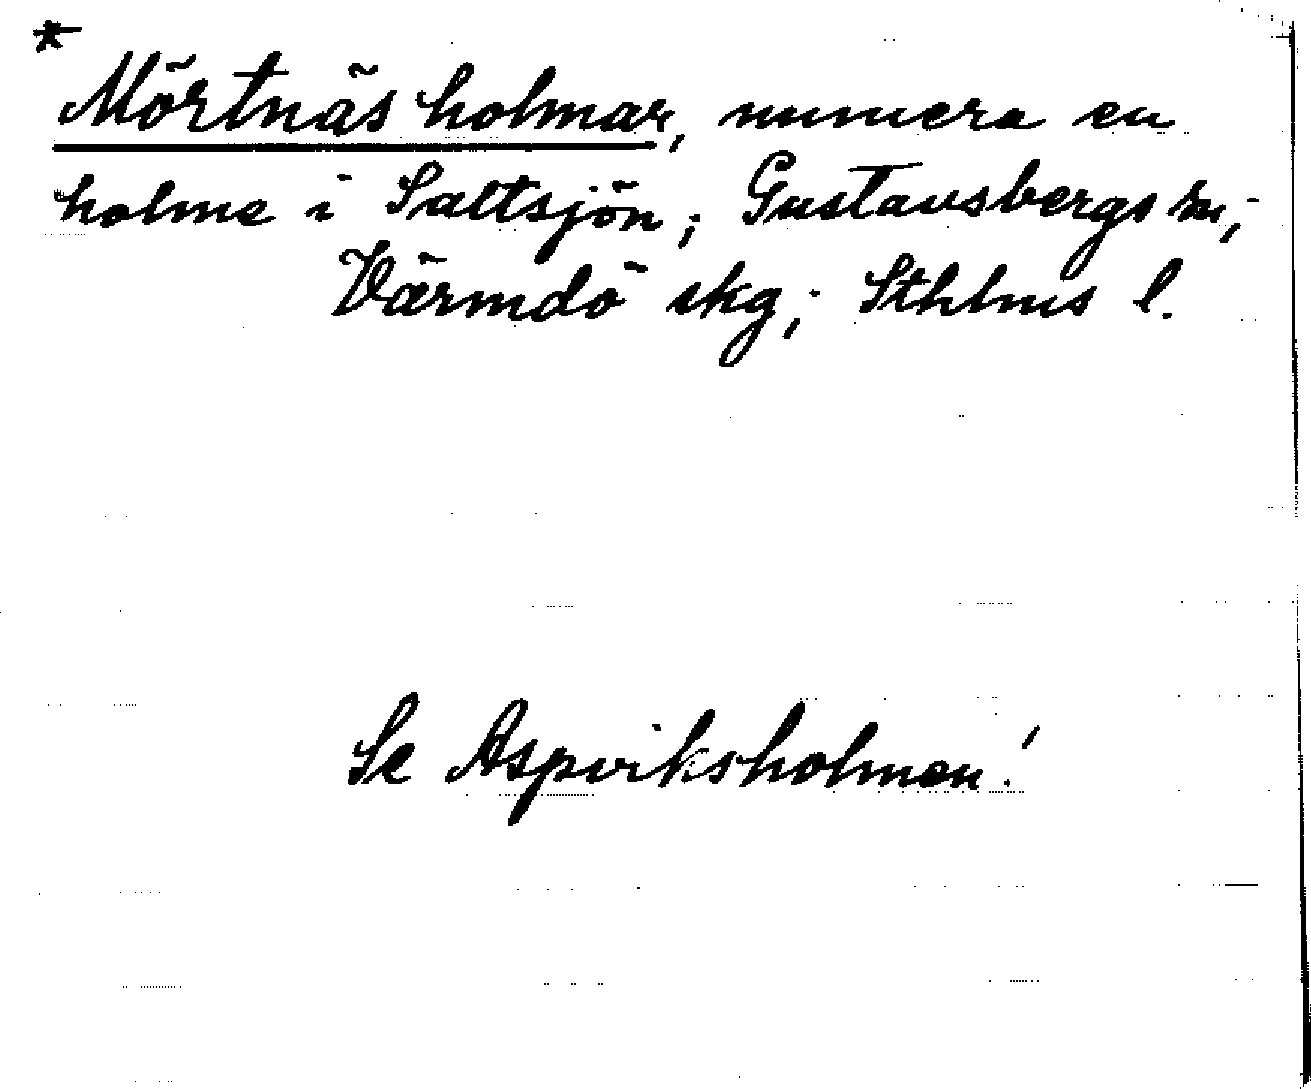 *
Mörtnäs holmar, numera en
holme i Saltsjön; Gustavsbergs sn;
Värmdö skg; Sthlms l.
Se Aspviksholmen!